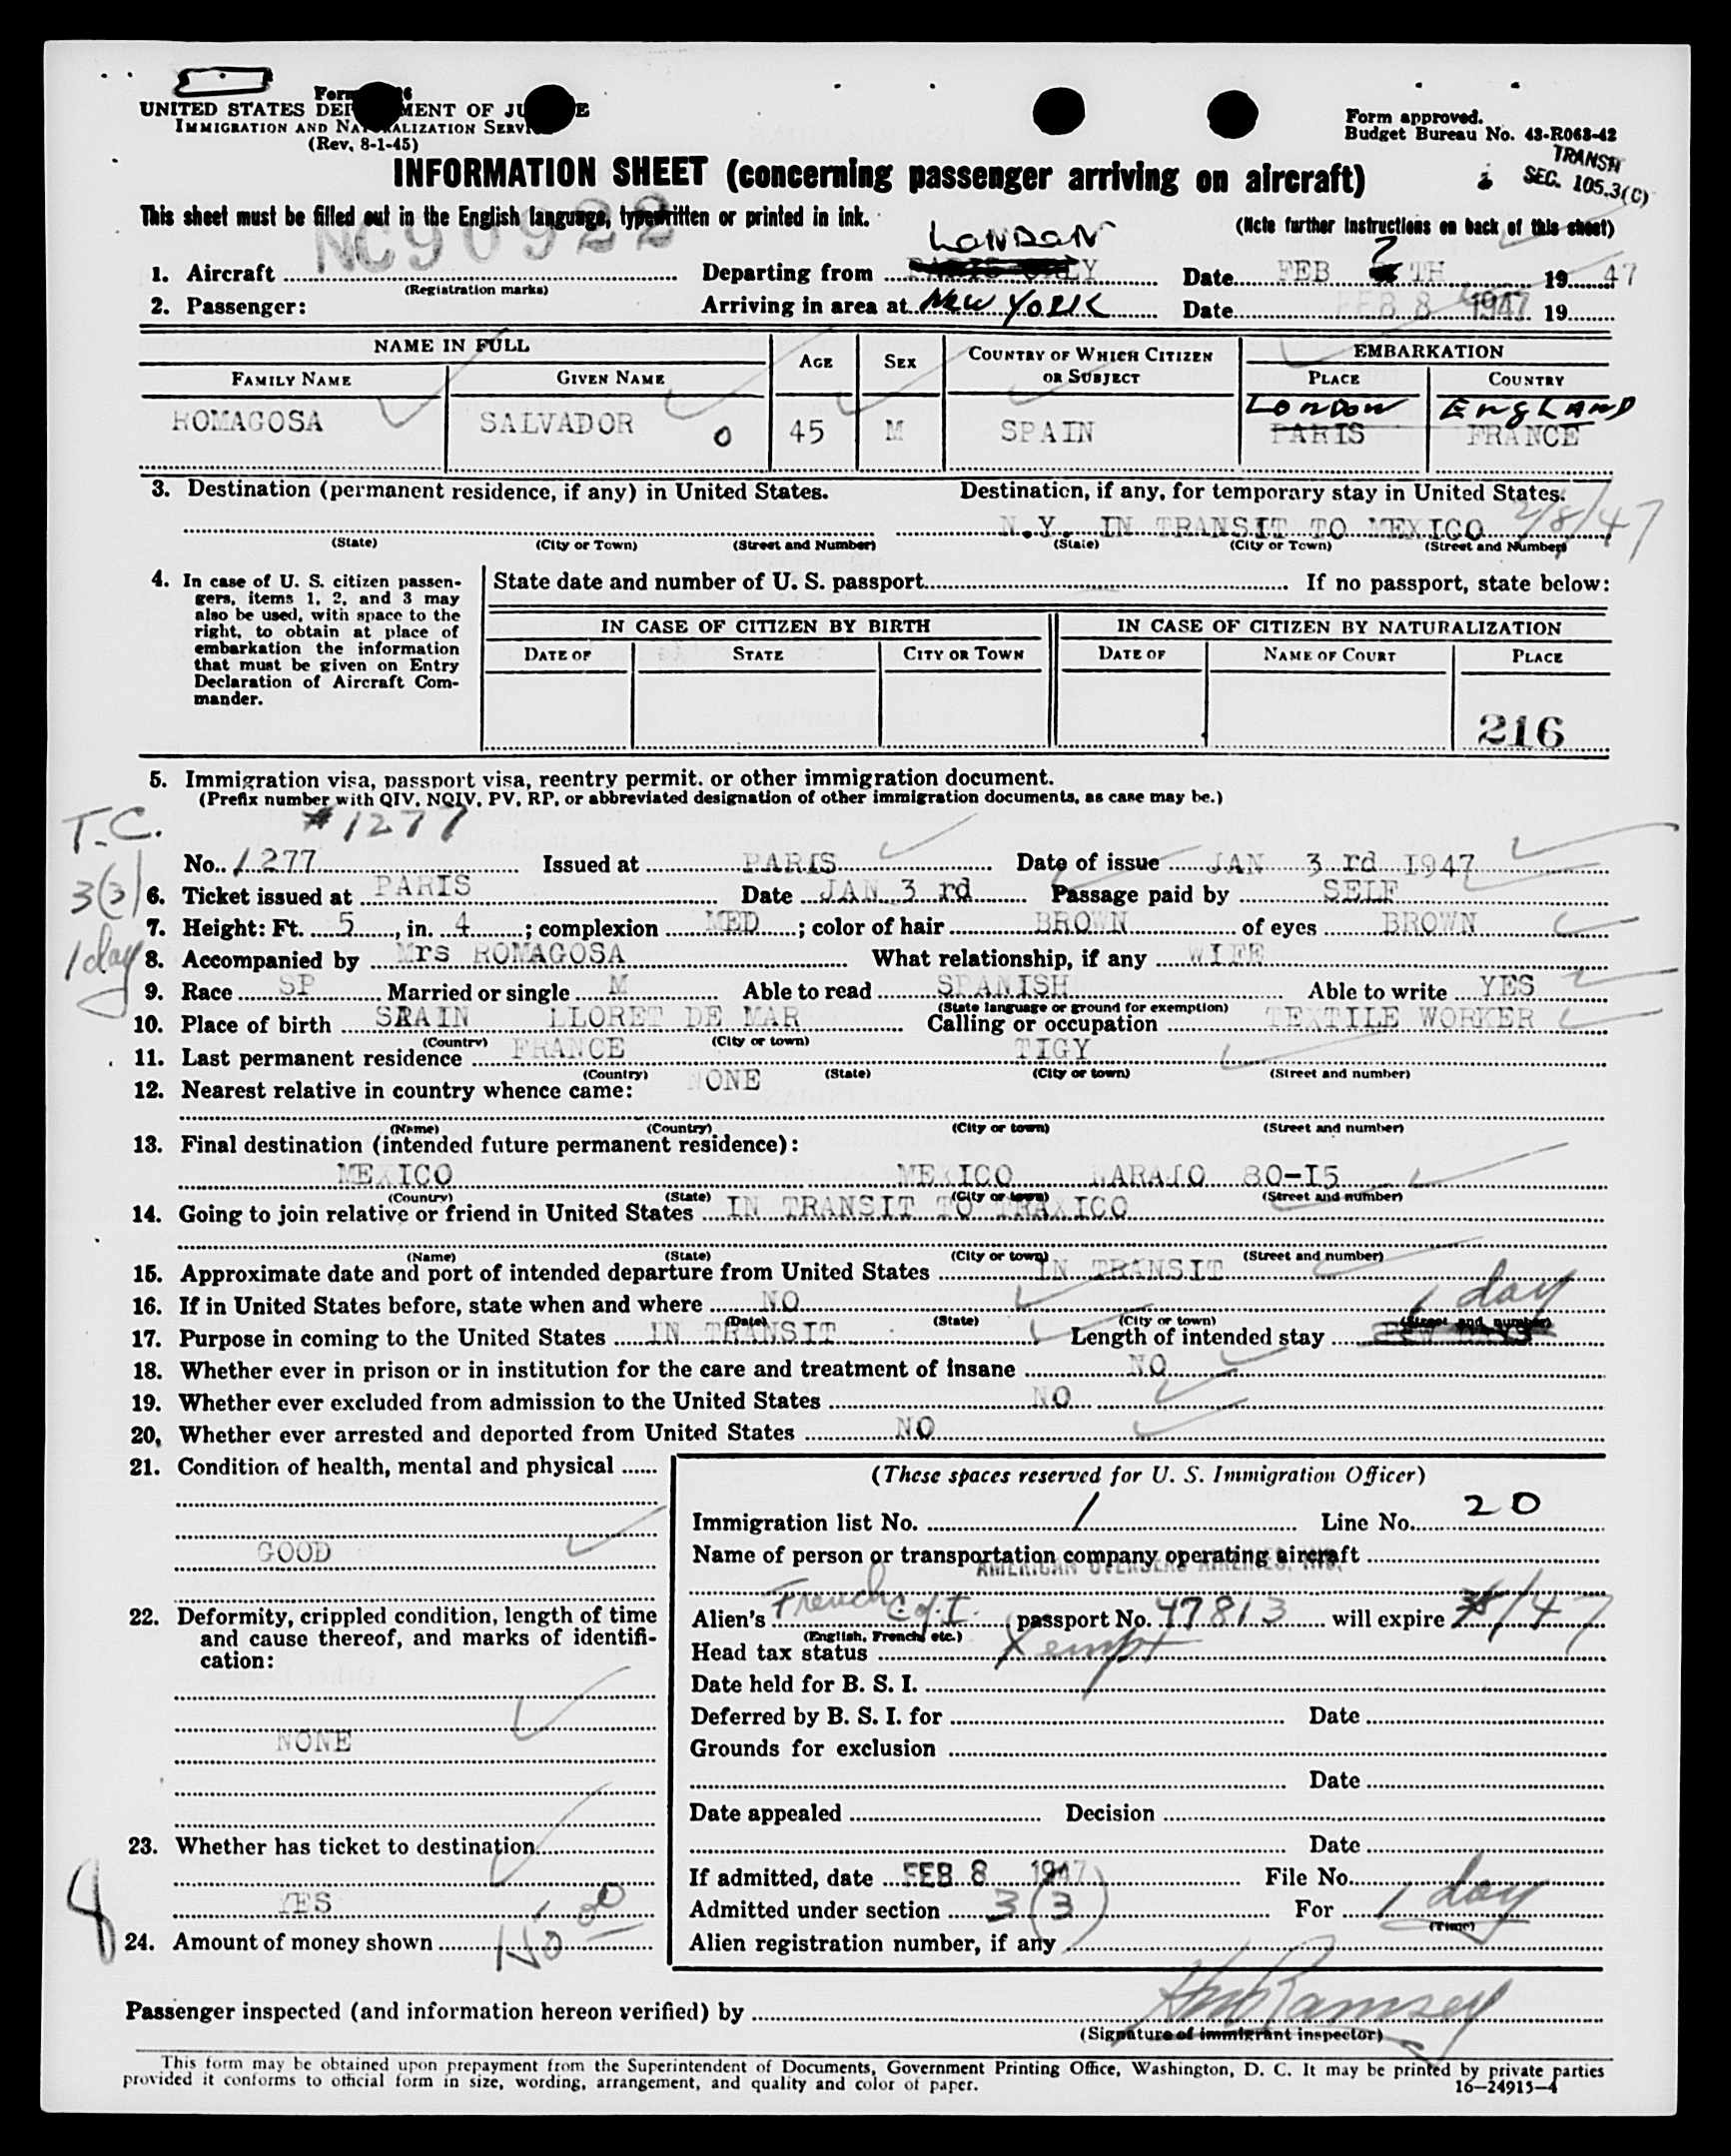 UNITED STATES DEP MENT OF JU E
IMMIGRATION AND NATURALIZATION SERVI
(Rev. 8-1-45)
Form approved.
Budget Bureau No. 43-R068-42
TRANSIT
SEC. 105.3(C)
INFORMATION SHEET (concerning passenger arriving on aircraft)
This sheet must be filled out in the English language, typewritten or printed in ink.
(Note further instructions on back of this sheet)
NC90922
LONDON
1. Aircraft Departing from Date FEB 7 TH 1947
(Registration marks)
2. Passenger: Arriving in area at NEW YORK Date FEB 8 1947 19
NAME IN FULL AGE SEX COUNTRY OF WHICH CITIZEN OR SUBJECT EMBARKATION
FAMILY NAME GIVEN NAME PLACE COUNTRY
LONDON ENGLAND
ROMAGOSA SALVADOR 0 45 M SPAIN PARIS FRANCE
3. Destination (permanent residence, if any) in United States. Destination, if any, for temporary stay in United States.
N.Y. IN TRANSIT TO MEXICO 2/8/47
(State) (City or Town) (Street and Number) (State) (City or Town) (Street and Number)
4. In case of U. S. citizen passen-
gers, items 1, 2, and 3 may
also be used, with space to the
right, to obtain at place of
embarkation the information
that must be given on Entry
Declaration of Aircraft Com-
mander.
State date and number of U. S. passport If no passport, state below:
IN CASE OF CITIZEN BY BIRTH IN CASE OF CITIZEN BY NATURALIZATION
DATE OF STATE CITY OR TOWN DATE OF NAME OF COURT PLACE
216
5. Immigration visa, passport visa, reentry permit, or other immigration document.
(Prefix number with QIV, NQIV, PV, RP, or abbreviated designation of other immigration documents, as case may be.)
T.C. #1277
No. 1277 Issued at PARIS Date of issue JAN 3 rd 1947
3(3)
6. Ticket issued at PARIS Date JAN 3 rd Passage paid by SELF
7. Height: Ft. 5, in. 4; complexion MED; color of hair BROWN of eyes BROWN
1 day
8. Accompanied by Mrs ROMAGOSA What relationship, if any WIFE
9. Race SP Married or single M Able to read SPANISH Able to write YES
(State language or ground for exemption)
10. Place of birth SPAIN LLORET DE MAR Calling or occupation TEXTILE WORKER
(Country) (City or town)
11. Last permanent residence FRANCE TIGY
(Country) (State) (City or town) (Street and number)
12. Nearest relative in country whence came: NONE
(Name) (Country) (City or town) (Street and number)
13. Final destination (intended future permanent residence):
MEXICO MEXICO 80-I5
(Country) (State) (City or town) (Street and number)
14. Going to join relative or friend in United States IN TRANSIT TO TRAXICO
(Name) (State) (City or town) (Street and number)
15. Approximate date and port of intended departure from United States IN TRANSIT
16. If in United States before, state when and where NO
(Date) (State) (City or town) (Street and number)
1 day
17. Purpose in coming to the United States IN TRANSIT Length of intended stay
18. Whether ever in prison or in institution for the care and treatment of insane NO
19. Whether ever excluded from admission to the United States NO
20. Whether ever arrested and deported from United States NO
21. Condition of health, mental and physical
GOOD
22. Deformity, crippled condition, length of time
and cause thereof, and marks of identifi-
cation:
NONE
23. Whether has ticket to destination
YES
8
24. Amount of money shown
(These spaces reserved for U. S. Immigration Officer)
Immigration list No. 1 Line No. 20
Name of person or transportation company operating aircraft
AMERICAN OVERSEAS AIRLINES, INC.
Alien's French C of I passport No. 47813 will expire /47
(English, French, etc.)
Head tax status Xempt
Date held for B. S. I.
Deferred by B. S. I. for Date
Grounds for exclusion
Date
Date appealed Decision
Date
If admitted, date FEB 8 1947 File No.
Admitted under section 3 (3) For 1 day
(Time)
Alien registration number, if any
Passenger inspected (and information hereon verified) by Ramsey
(Signature of immigrant inspector)
This form may be obtained upon prepayment from the Superintendent of Documents, Government Printing Office, Washington, D. C. It may be printed by private parties
provided it conforms to official form in size, wording, arrangement, and quality and color of paper.
16—24915-4